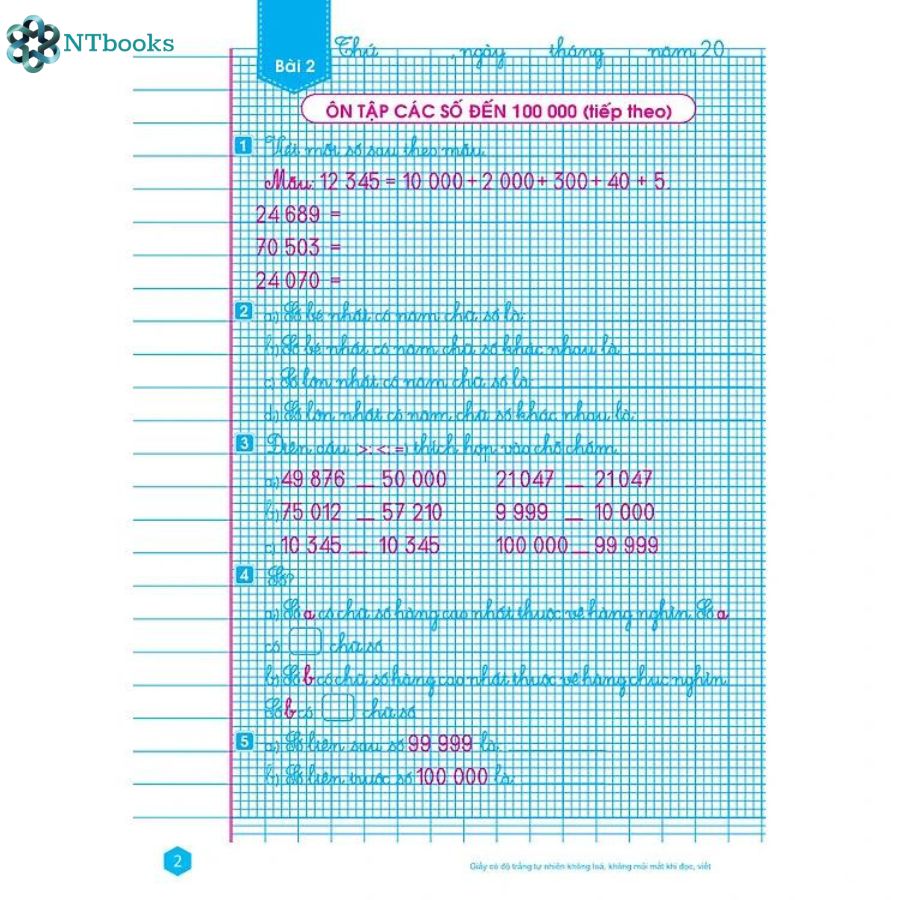 NTbooks
Thứ ,ngày tháng năm 20
Bài 2
ÔN TẬP CÁC SỐ ĐẾN 100 000 (tiếp theo)
1 Viết mỗi số sau theo mẫu
Mẫu: 12 345 = 10 000 + 2 000 + 300 + 40 + 5
24 689 =
70 503 =
24 070 =
2 a) Số bé nhất có năm chữ số là:
b) Số bé nhất có năm chữ số khác nhau là
c) Số lớn nhất có năm chữ số là:
d) Số lớn nhất có năm chữ số khác nhau là
3 Điền dấu >; <; = thích hợp vào chỗ chấm
a) 49 876 __ 50 000 21 047 __ 21 047
b) 75 012 __ 57 210 9 999 __ 10 000
c) 10 345 __ 10 345 100 000 __ 99 999
4 Số?
a) Số a có chữ số hàng cao nhất thuộc về hàng nghìn. Số a
có chữ số
b) Số b có chữ số hàng cao nhất thuộc về hàng chục nghìn
Số b có chữ số
5 a) Số liền sau số 99 999 là
b) Số liền trước số 100 000 là
2
Giấy có độ trắng tự nhiên không loá, không mỏi mắt khi đọc, viết